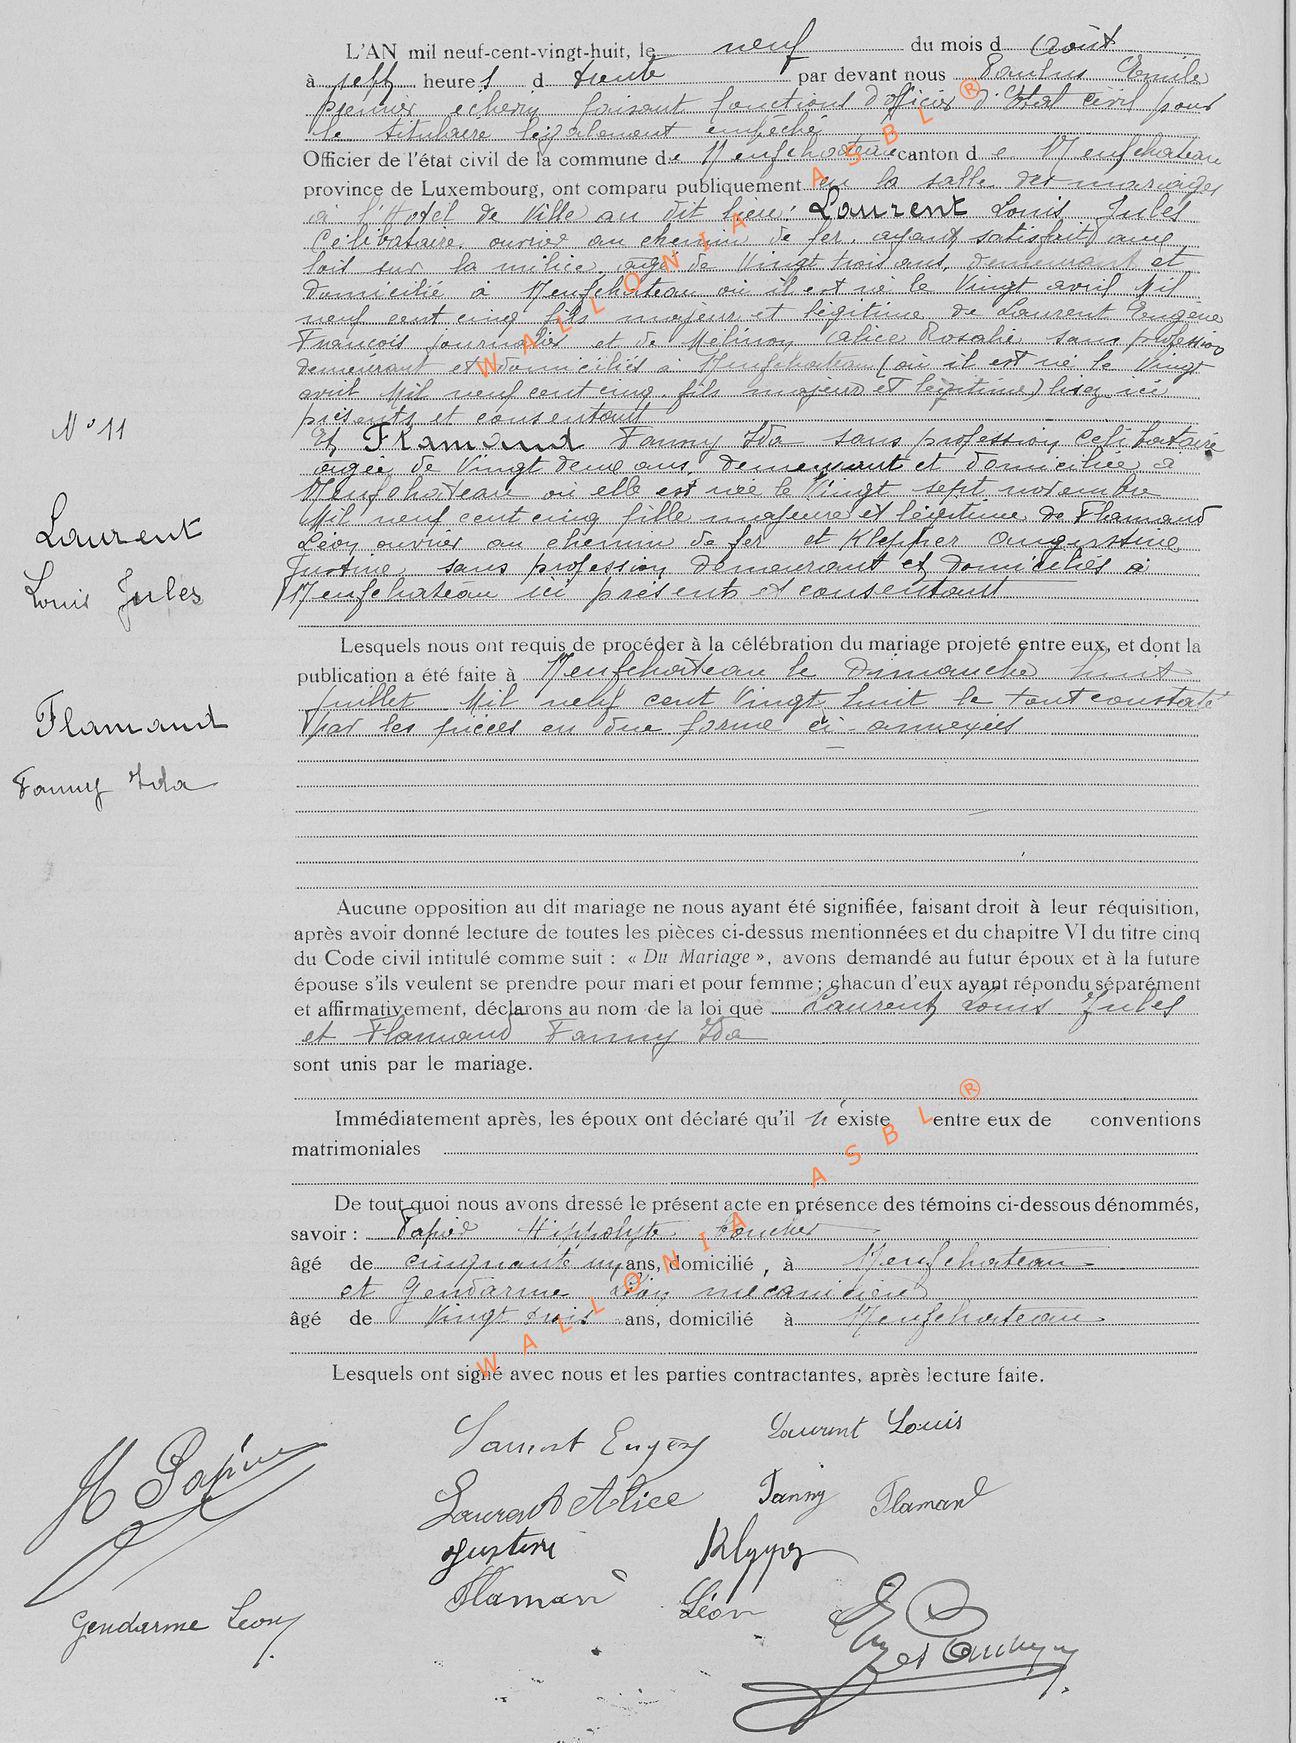 L'AN mil neuf-cent-vingt-huit, le neuf du mois d Août
à sept heures d trente par devant nous Paulus Emile
premier echevin faisant fonctions d'officier d'Etat civil pour
le titulaire légalement empêché
Officier de l'état civil de la commune de Neufchateau canton de Neufchateau
province de Luxembourg, ont comparu publiquement en la salle des mariages
à l'Hotel de Ville au dit lieu: Laurent Louis Jules
Célibataire, ouvrier au chemin de fer, ayant satisfait aux
lois sur la milice, agé de Vingt trois ans, demeurant et
domicilié à Neufchateau où il est né le Vingt avril Mil
neuf cent cinq fils majeur et légitime de Laurent Eugène
François journalier et de Mélinon Alice Rosalie sans profession
demeurant et domiciliés à Neufchateau (où il est né le Vingt
avril Mil neuf cent cinq, fils majeur et légitime) lisez ici
présents et consentant
N° 11
Et Flamand Fanny Ida sans profession célibataire
agée de Vingt deux ans, demeurant et domiciliée à
Neufchateau où elle est née le Vingt sept novembre
Mil neuf cent cinq fille majeure et légitime de Flamand
Léon ouvrier au chemin de fer et Klepper Augustine
Justine sans profession demeurant et domiciliés à
Neufchateau ici présents et consentant
Laurent
Louis Jules
Flamand
Fanny Ida
Lesquels nous ont requis de procéder à la célébration du mariage projeté entre eux, et dont la
publication a été faite à Neufchateau le Dimanche huit
juillet Mil neuf cent Vingt huit le tout constaté
par les pièces en due forme ci-annexées
Aucune opposition au dit mariage ne nous ayant été signifiée, faisant droit à leur réquisition,
après avoir donné lecture de toutes les pièces ci-dessus mentionnées et du chapitre VI du titre cinq
du Code civil intitulé comme suit : « Du Mariage », avons demandé au futur époux et à la future
épouse s'ils veulent se prendre pour mari et pour femme ; chacun d'eux ayant répondu séparément
et affirmativement, déclarons au nom de la loi que Laurent Louis Jules
et Flamand Fanny Ida
sont unis par le mariage.
Immédiatement après, les époux ont déclaré qu'il n'existe entre eux de conventions
matrimoniales
De tout quoi nous avons dressé le présent acte en présence des témoins ci-dessous dénommés,
savoir : Papier Hippolyte boucher
âgé de cinquante un ans, domicilié, à Neufchateau
et Gendarme Léon mécanicien
âgé de Vingt trois ans, domicilié à Neufchateau
Lesquels ont signé avec nous et les parties contractantes, après lecture faite.
Laurent Eugène Laurent Louis
H Papier
Laurent Alice Fanny Flamand
Justine Klepper
Flamand Léon
Gendarme Léon
WALLONIA ASBL ®
WALLONIA ASBL ®